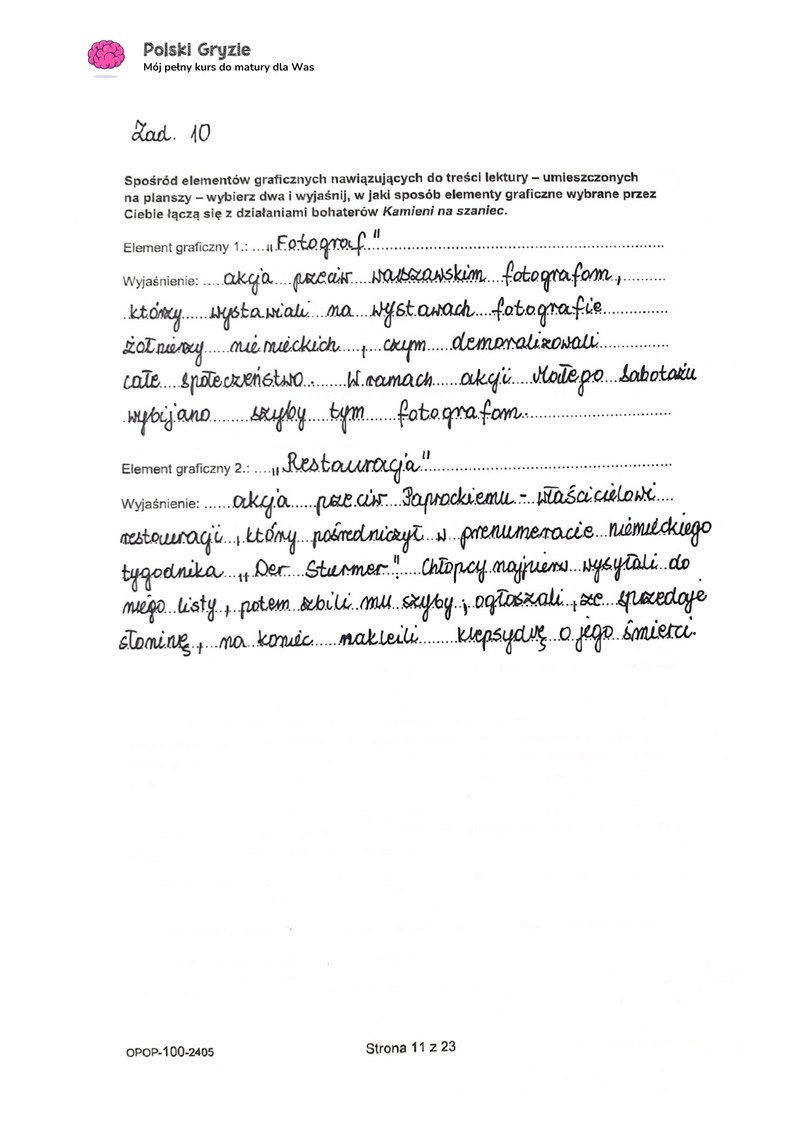 Polski Gryzie
Mój pełny kurs do matury dla Was
Zad. 10
Spośród elementów graficznych nawiązujących do treści lektury – umieszczonych
na planszy – wybierz dwa i wyjaśnij, w jaki sposób elementy graficzne wybrane przez
Ciebie łączą się z działaniami bohaterów Kamieni na szaniec.
Element graficzny 1.: „Fotograf"
Wyjaśnienie: akcja przeciw warszawskim fotografom,
którzy wystawiali na wystawach fotografie
żołnierzy niemieckich, czym demoralizowali
całe społeczeństwo. W ramach akcji Małego Sabotażu
wybijano szyby tym fotografom.
Element graficzny 2.: „Restauracja"
Wyjaśnienie: akcja przeciw Paprockiemu - właścicielowi
restauracji, który pośredniczył w prenumeracie niemieckiego
tygodnika „Der Sturmer". Chłopcy najpierw wysyłali do
niego listy, potem zbili mu szyby, ogłaszali, że sprzedaje
słoninę, na koniec nakleili klepsydrę o jego śmierci.
OPOP-100-2405
Strona 11 z 23